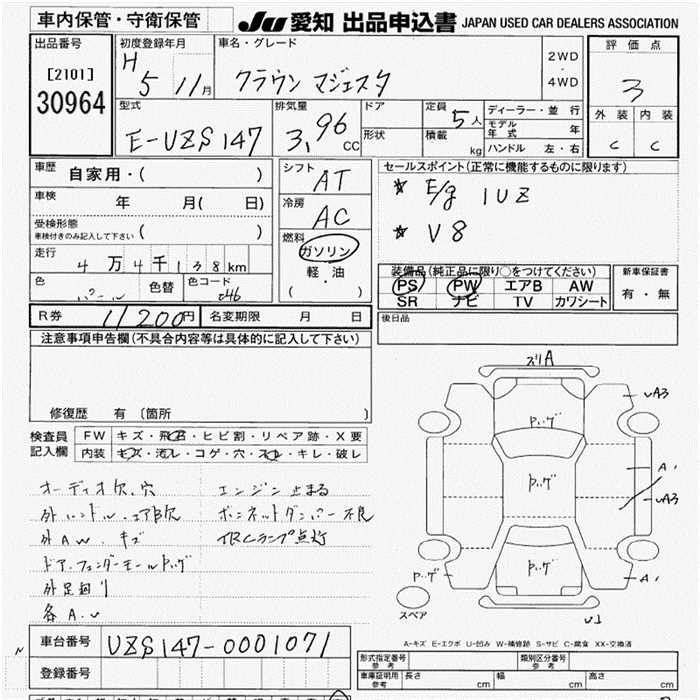 車内保管・守衛保管
JU 愛知 出品申込書 JAPAN USED CAR DEALERS ASSOCIATION
出品番号
[2101]
30964
初度登録年月
H 5 11月
車名・グレード
クラウン マジェスタ
2WD
・
4WD
評価点
3
外装 内装
C C
型式
E-UZS147
排気量
3,96 CC
ドア
形状
定員 5人
積載 kg
ディーラー・並行
モデル年式 年
ハンドル 左・右
車歴 自家用・( )
車検 年 月( 日)
受検形態
車検付きのみ記入して下さい ( )
走行 4万4千138km
色 パール 色替 色コード 046
シフト AT
冷房 AC
燃料
ガソリン
軽・油
( ・ )
セールスポイント(正常に機能するものに限ります)
* E/g 1UZ
* V8
装備品(純正品に限り○をつけてください)
PS PW エアB AW
SR ナビ TV カワシート
新車保証書
有・無
R券 11200円 名変期限 月 日
後日品
注意事項申告欄(不具合内容等は具体的に記入して下さい)
修復歴 有 〔箇所 〕
検査員記入欄
FW キズ・飛石・ヒビ割・リペア跡・X要
内装 キズ・汚レ・コゲ・穴・スレ・キレ・破レ
オーディオ欠.穴
外ハンドル.エアB欠
外AW.キズ
ドア.フェンダーモールハゲ
外足廻り
各A.U
エンジン止まる
ボンネットダンパー不良
TRCランプ点灯
スリA
ハ.ゲ
UA3
ハ.ゲ
A1
UA3
ハ.ゲ
ハ.ゲ
A1
スペア
U1
A-キズ E-エクボ U-凹み W-補修跡 S-サビ C-腐食 XX-交換済
車台番号 UZS147-0001071
登録番号
形式指定番号 参考
類別区分番号 参考
車庫証明用 参考 長さ cm 幅 cm 高さ cm